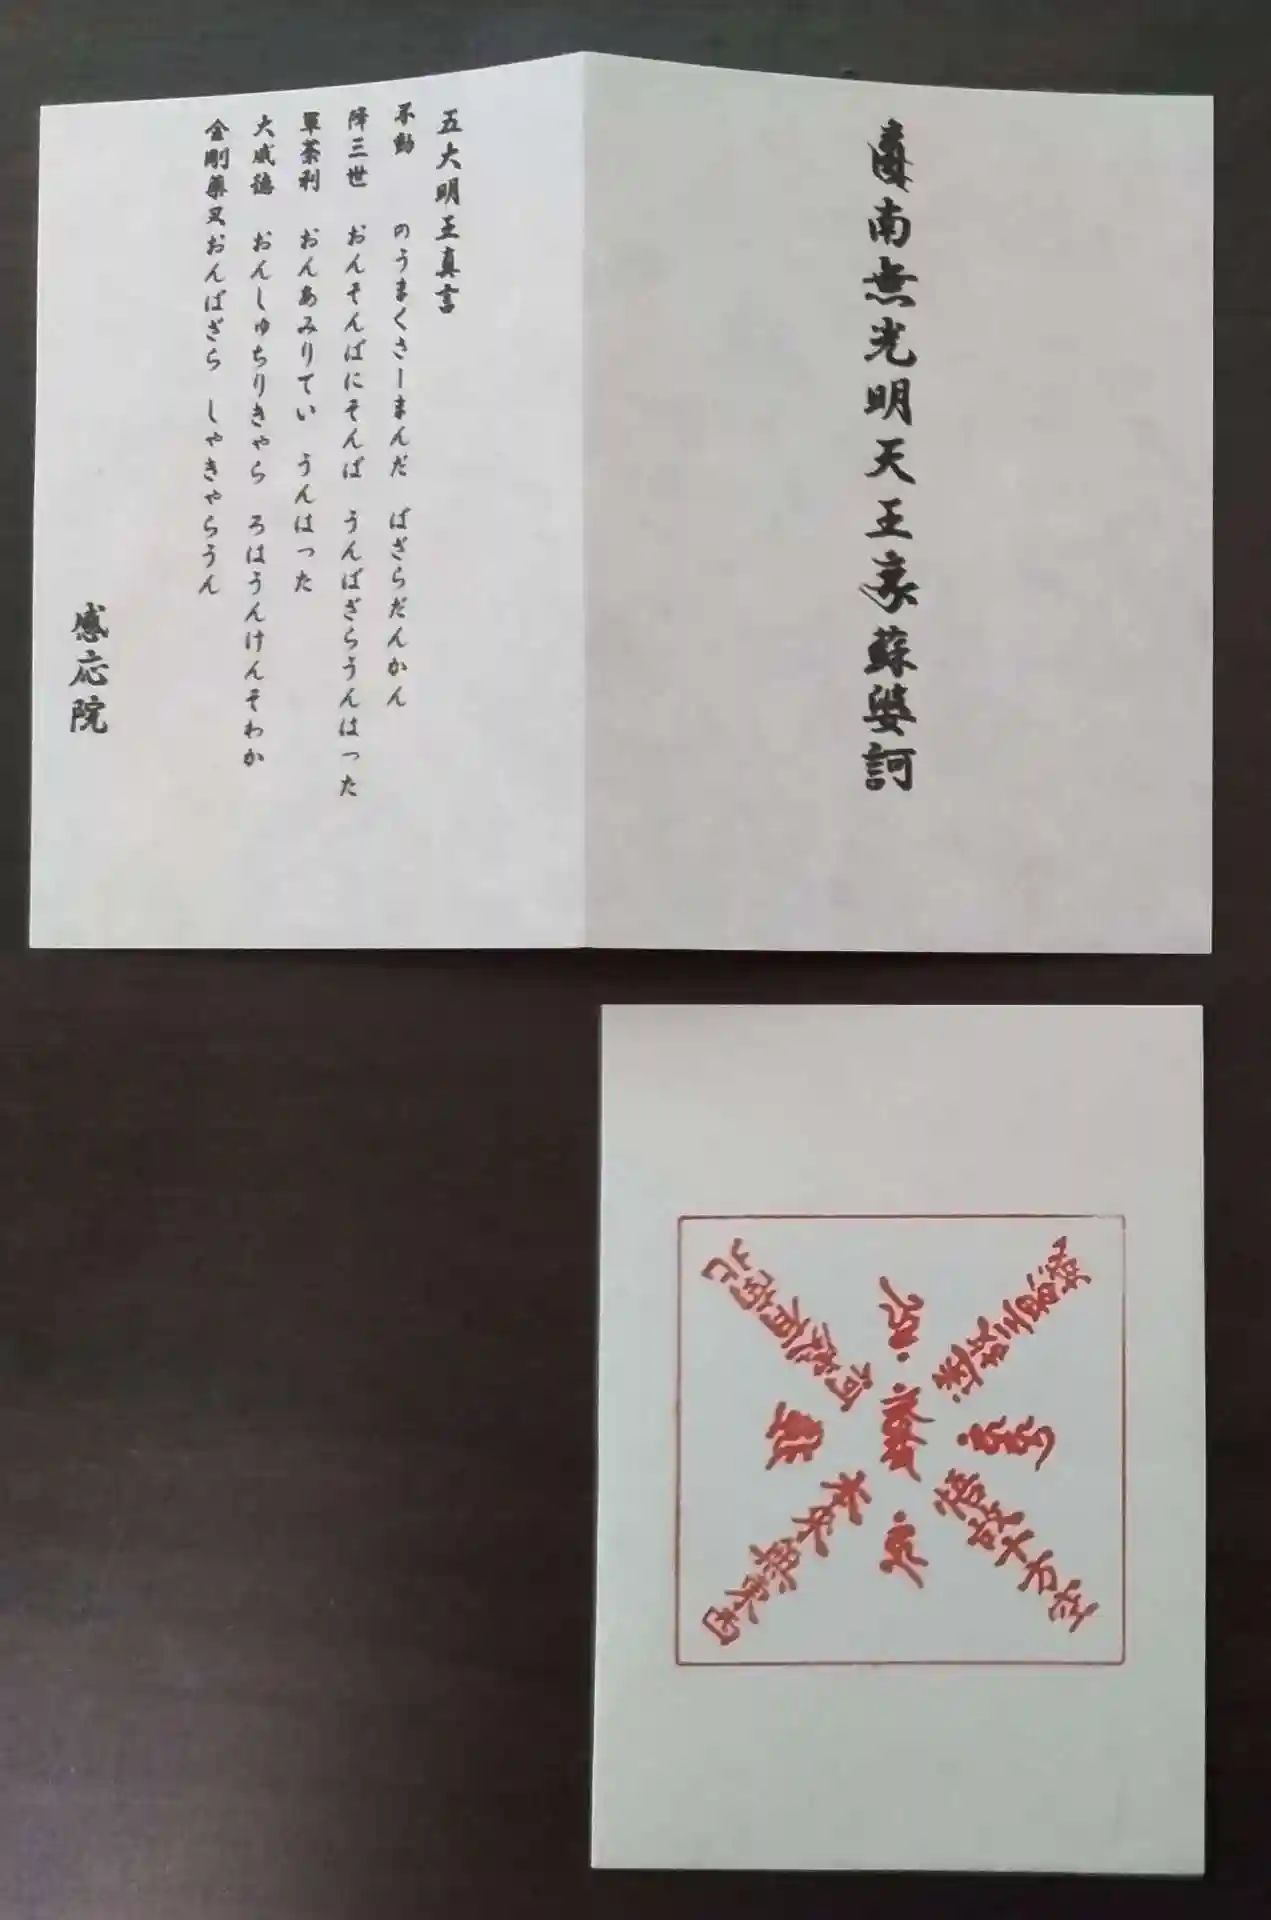 南無光明天王 蘇婆訶
五大明王真言
不動 のうまくさーまんだ ばざらだんかん
降三世 おんそんばにそんば うんばざらうんはった
軍荼利 おんあみりてい うんはった
大威徳 おんしゅちりきゃら ろはうんけんそわか
金剛薬叉おんばざら しゃきゃらうん
感応院
迷故三界城
悟故十方空
本来無東西
何処有南北